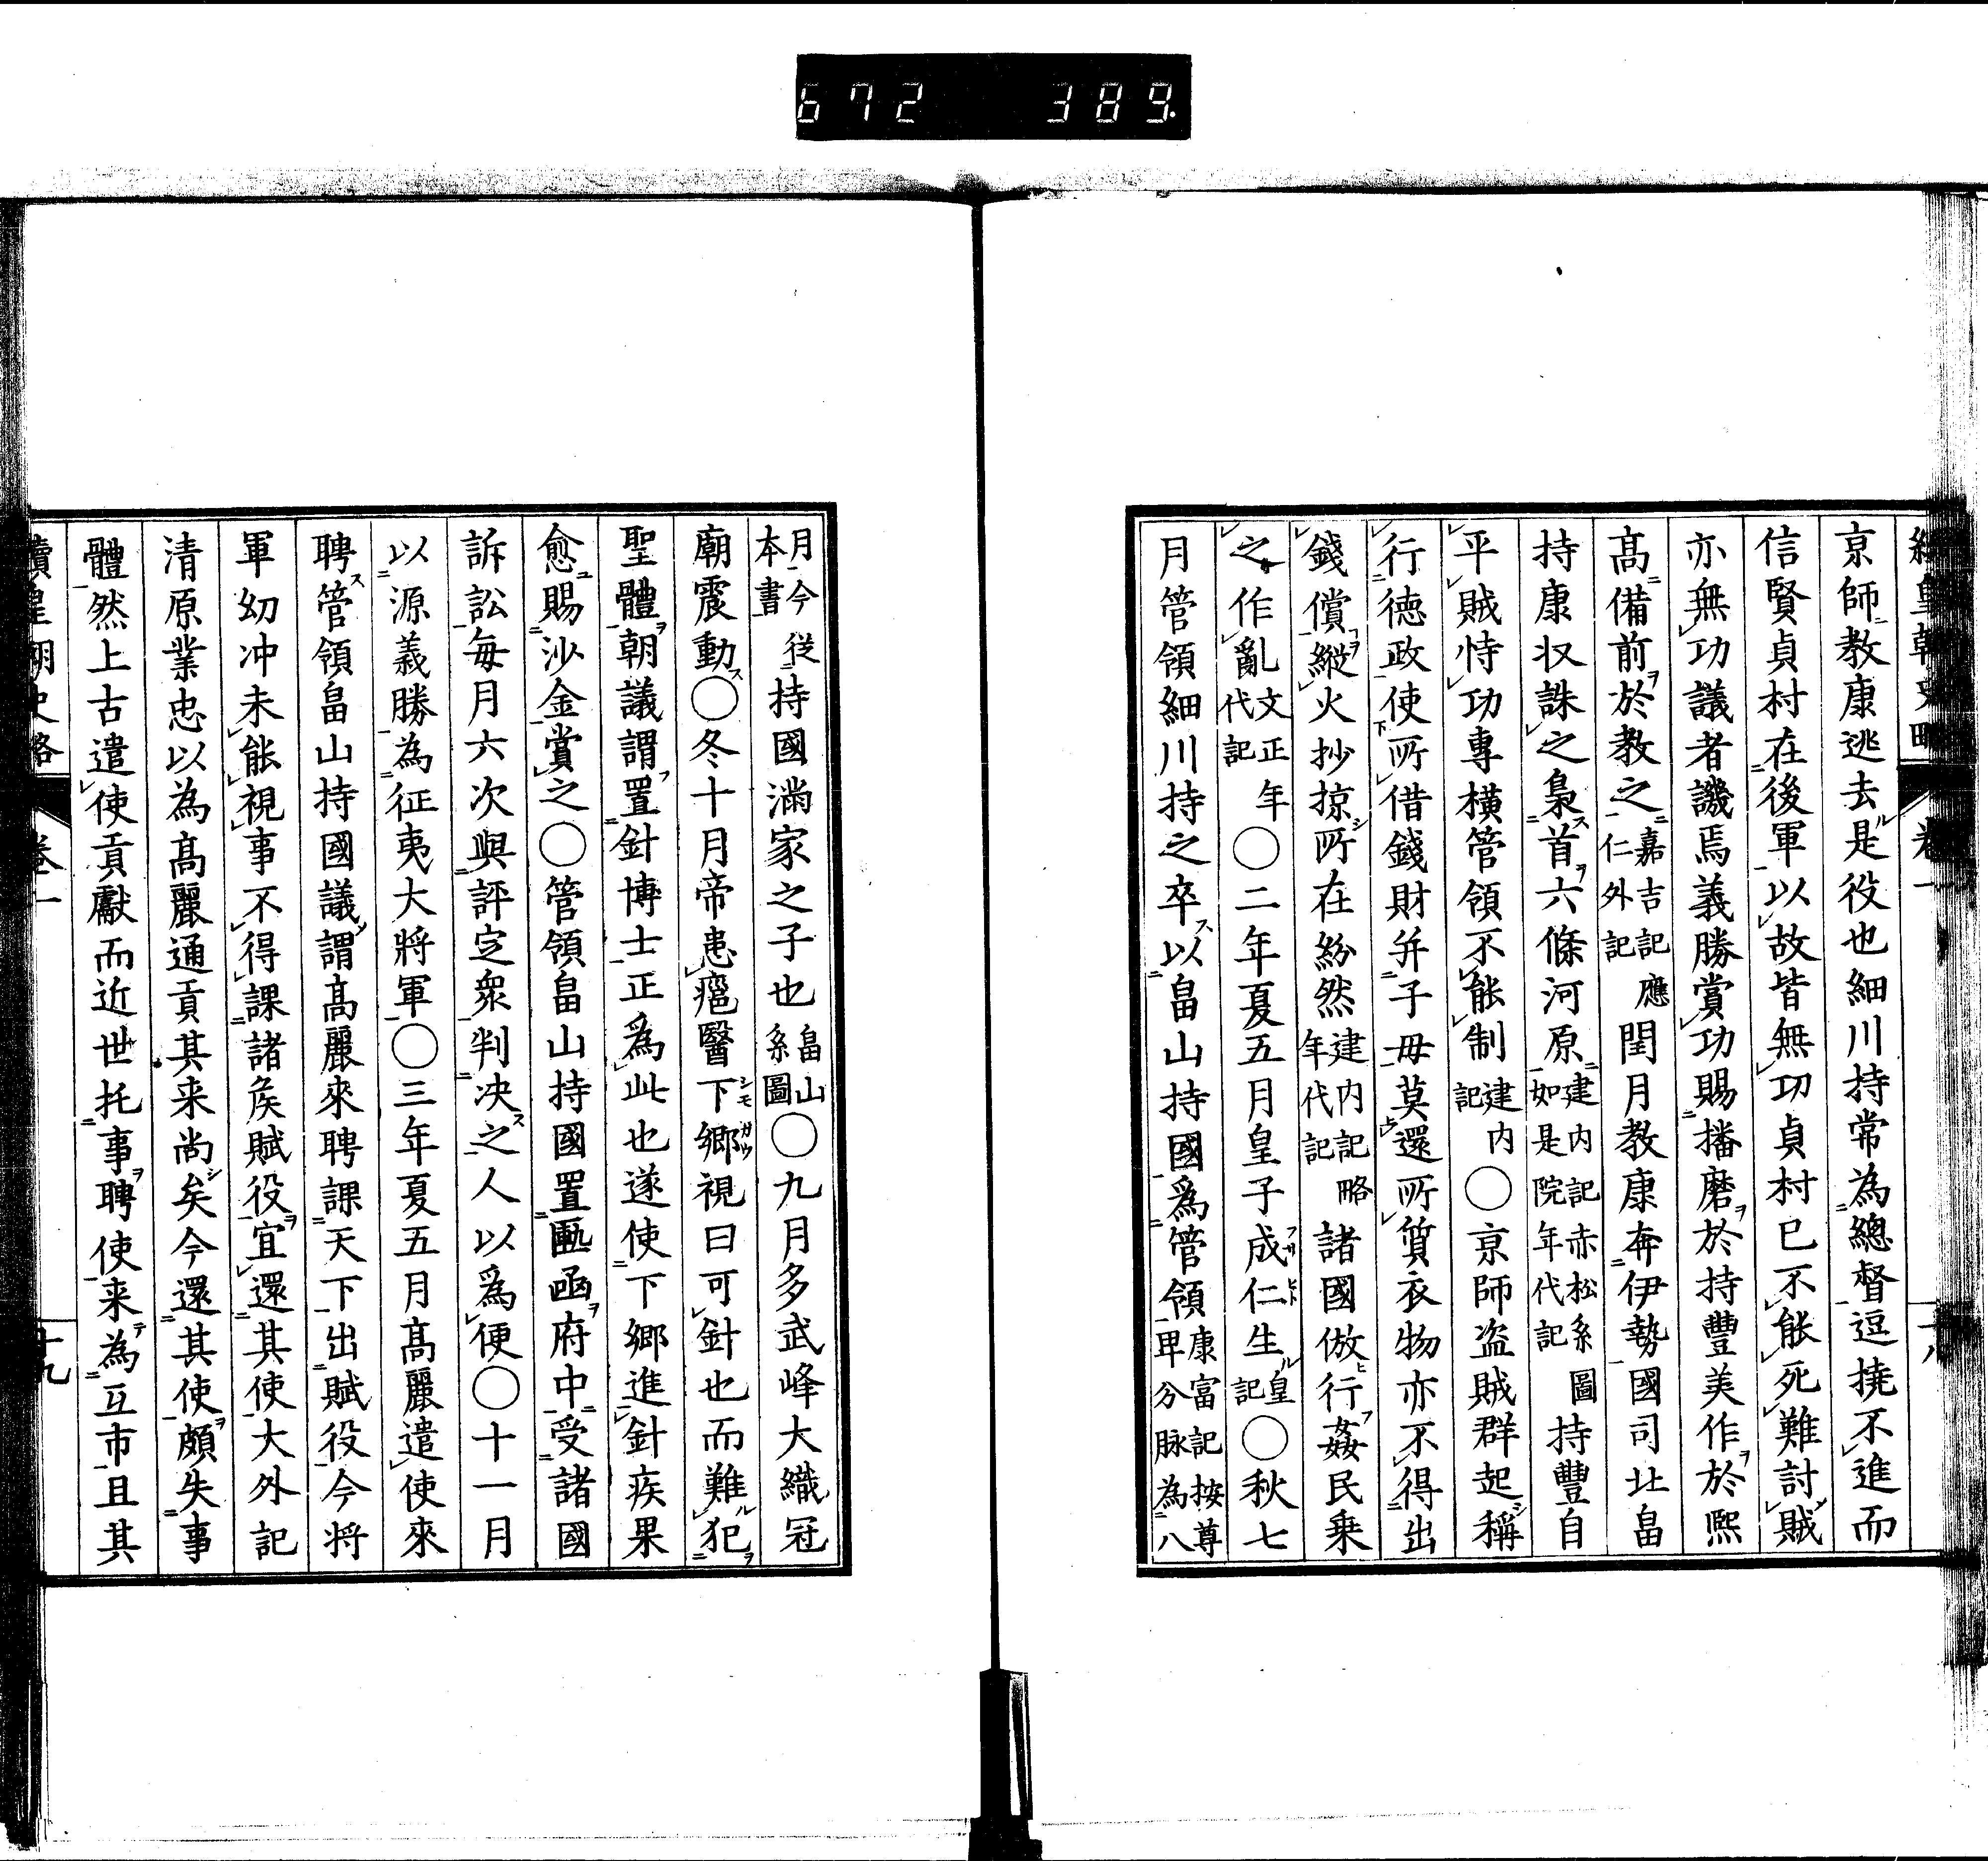 672 389.
京師教康逃去是役也細川持常為總督逗撓不進而
信賢貞村在後軍以故皆無功貞村已不能死難討賊
亦無功議者譏焉義勝賞功賜播磨於持豐美作於熙
高備前於教之嘉吉記應仁外記閏月教康奔伊勢國司北畠
持康収誅之梟首六條河原建内記赤松系圖如是院年代記持豐自
平賊恃功專横管領不能制建内記〇京師盗賊群起稱
行徳政使所借錢財弁子毋莫還所質衣物亦不得出
錢償縱火抄掠所在紛然建内記略年代記諸國倣行姦民乗
之作亂文正年代記〇二年夏五月皇子成仁生皇記〇秋七
月管領細川持之卒以畠山持國爲管領康富記按尊卑分脉為八
月今從本書持國滿家之子也畠山系圖〇九月多武峰大織冠
廟震動〇冬十月帝患瘡醫下郷視曰可針也而難犯
聖體朝議謂置針博士正爲此也遂使下郷進針疾果
愈賜沙金賞之〇管領畠山持國置匭函府中受諸國
訴訟毎月六次與評定衆判决之人以爲便〇十一月
以源義勝為征夷大將軍〇三年夏五月高麗遣使來
聘管領畠山持國議謂高麗來聘課天下出賦役今将
軍幼冲未能視事不得課諸矦賦役宜還其使大外記
清原業忠以為高麗通貢其来尚矣今還其使頗失事
體然上古遣使貢獻而近世托事聘使来為互市且其
續皇朝史略 卷一 十九